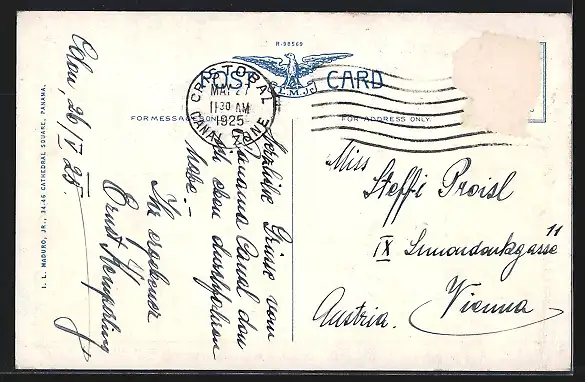 R-98569
POST CARD
I.L.M.Jr.
CRISTOBAL
MAY 27
11 30 AM
1925
CANAL ZONE
FOR MESSAGE ONLY
FOR ADDRESS ONLY
I. L. MADURO, JR., 34-46 CATHEDRAL SQUARE, PANAMA.
Colon, 26/V 25
Herzliche Grüsse vom
Panama Canal den
ich eben durchfahren
habe.-
Ihr ergebener
Ernst
Miss
Steffi Proisl
IX Simondenkgasse 11
Vienna
Austria.